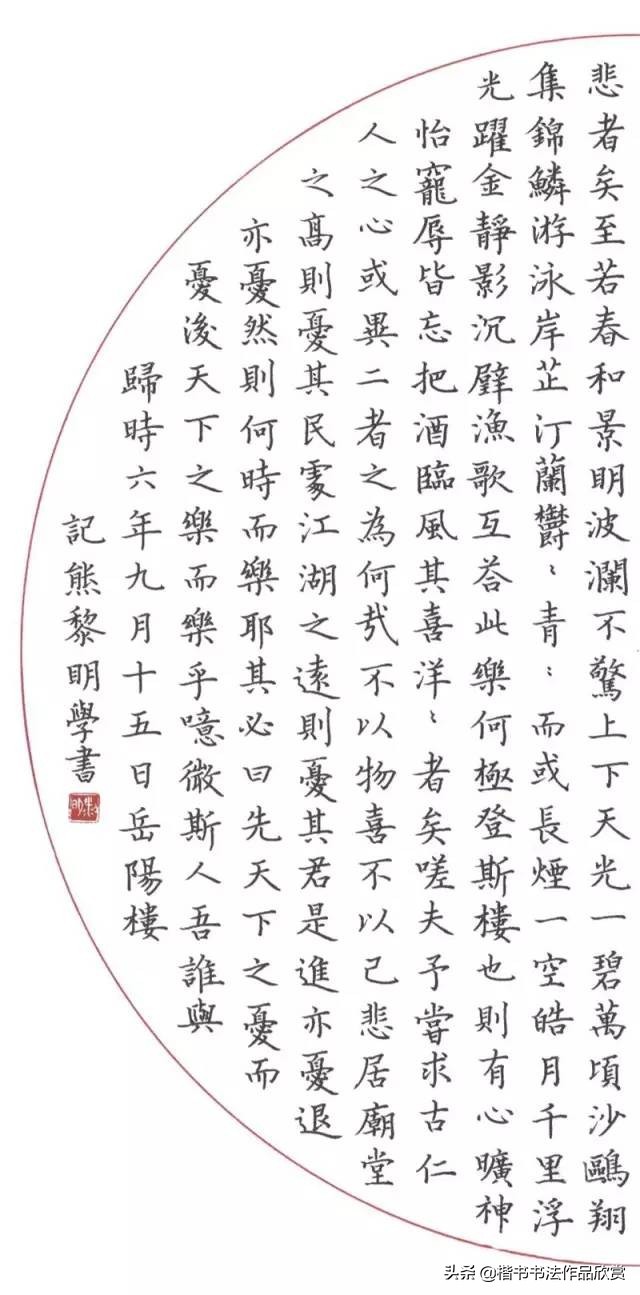 悲者矣至若春和景明波瀾不驚上下天光一碧萬頃沙鷗翔
集錦鱗游泳岸芷汀蘭欝〻青〻而或長煙一空皓月千里浮
光躍金靜影沉璧漁歌互荅此樂何極登斯樓也則有心曠神
怡寵辱皆忘把酒臨風其喜洋〻者矣嗟夫予嘗求古仁
人之心或異二者之為何哉不以物喜不以己悲居廟堂
之髙則憂其民處江湖之遠則憂其君是進亦憂退
亦憂然則何時而樂耶其必曰先天下之憂而
憂後天下之樂而樂乎噫微斯人吾誰與
歸時六年九月十五日岳陽樓
記熊黎明學書
头条 @楷书书法作品欣赏